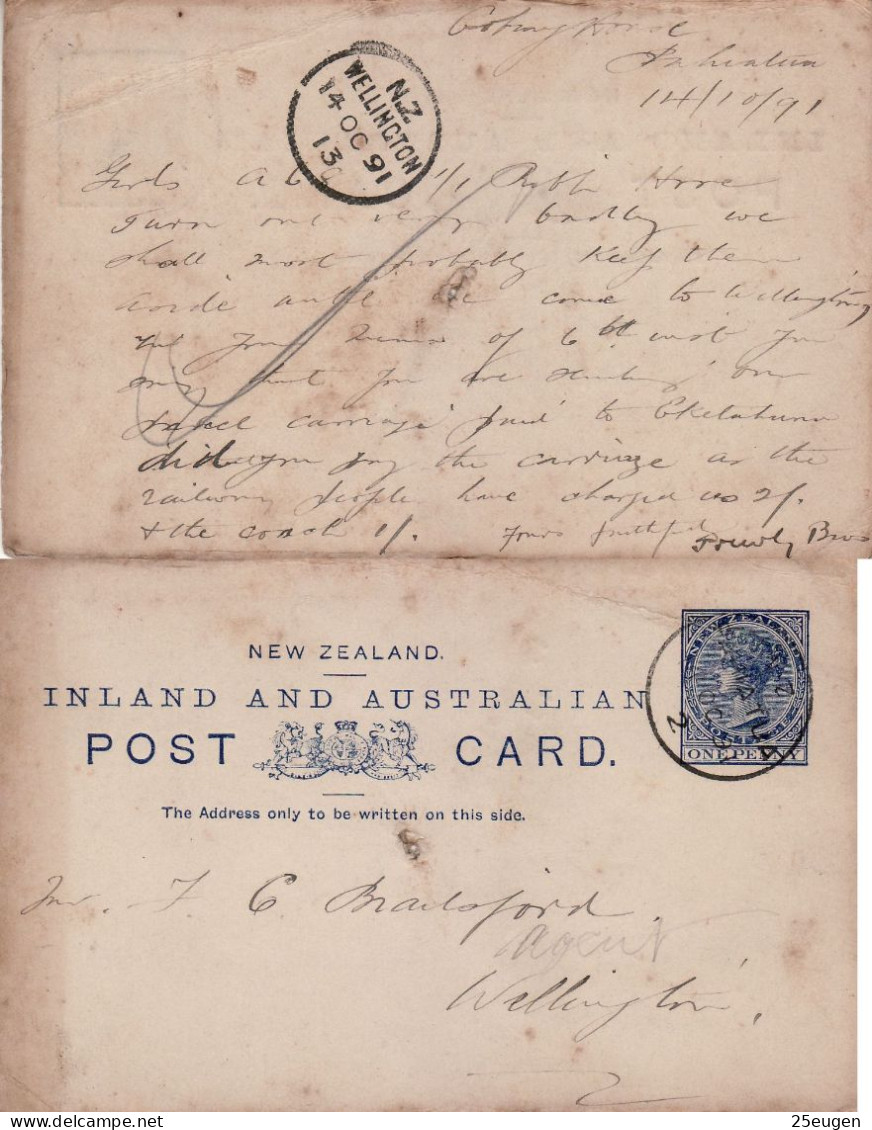 House
Pahiatua
14/10/91
N.Z.
WELLINGTON
14 OC 91
13
Girls 1/1 House
turn out very badly we
shall most probably keep them
aside until we come to Wellington
of 6th inst you
say that you are sending our
parcel carriage paid to Eketahuna
did you pay the carriage as the
railway people have charged us 2/.
& the coach 1/. Yours faithfully
Bros
NEW ZEALAND.
INLAND AND AUSTRALIAN
POST CARD.
The Address only to be written on this side.
NEW ZEALAND
POSTAGE
ONE PENNY
2
Mr. F C Brailsford
Agent
Wellington.
25eugen